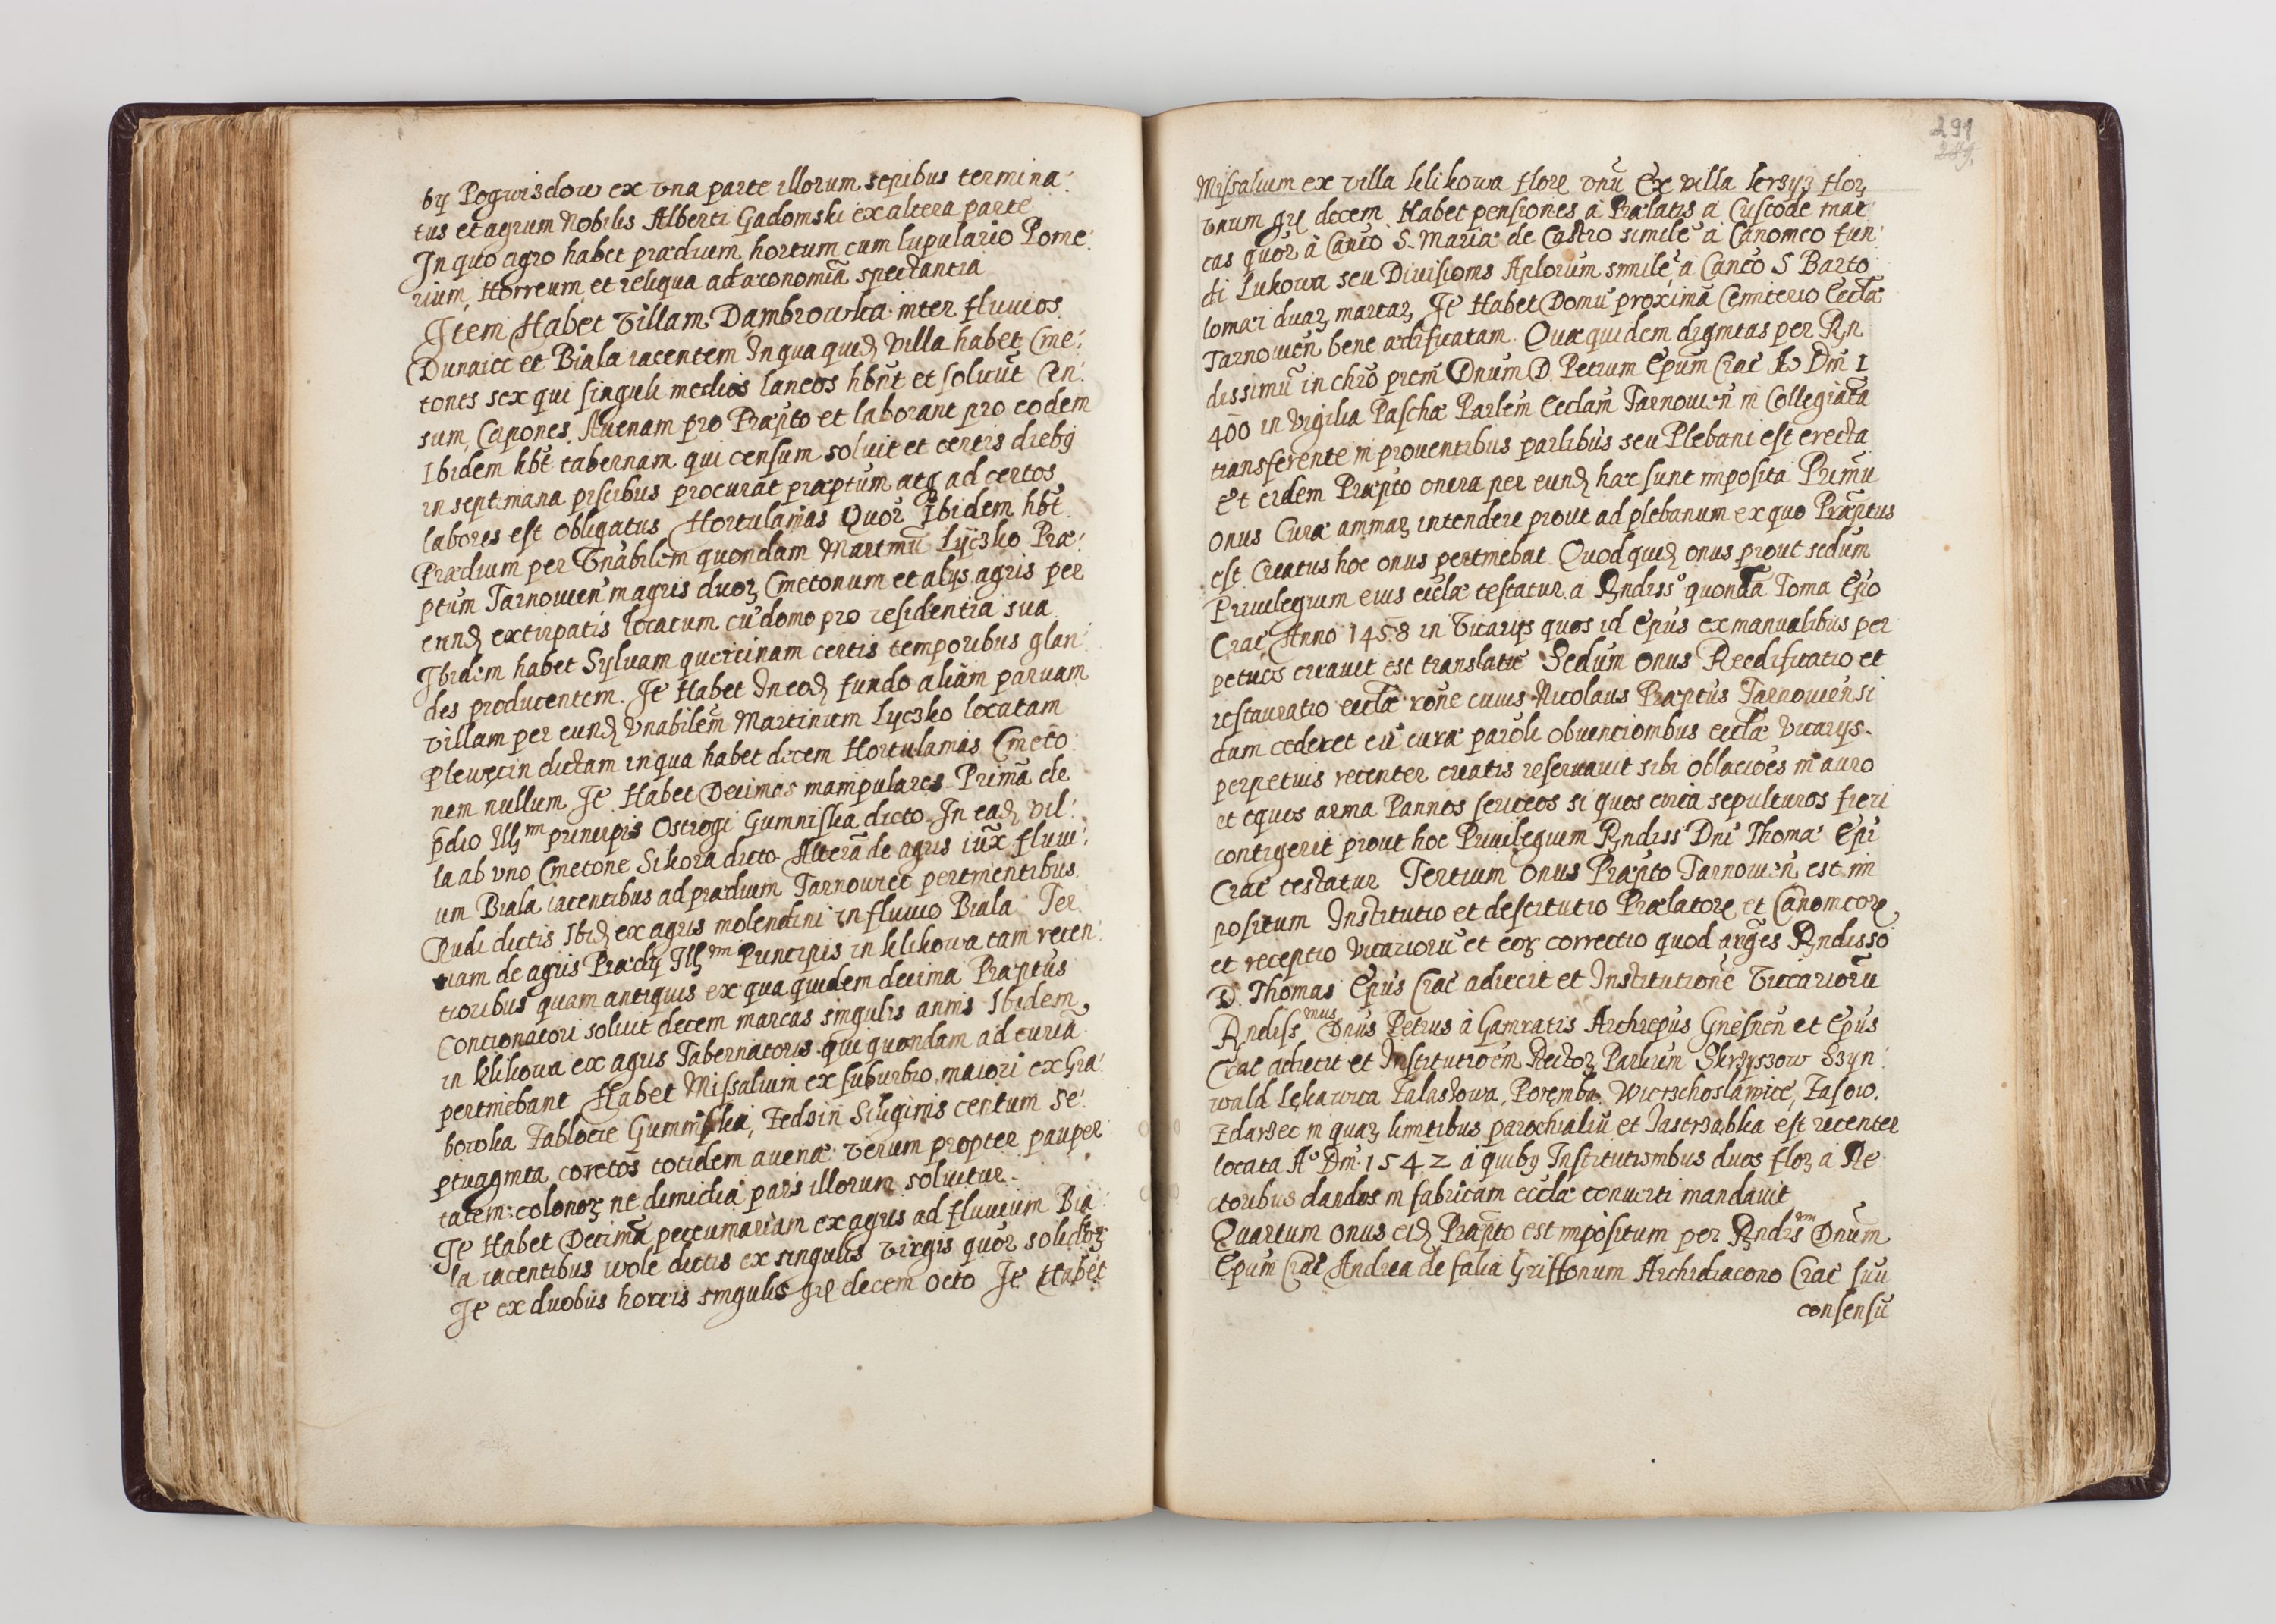 by Pogwisdow ex vna parte illorum sepibus termina:
tus et agrum Nobilis Alberti Gadomski ex altera parte
In quo agro habet prædium hortum cum lupulario Pome:
rium, Horreum et reliqua ad œconomiã spectantia
Item Habet Villam Dambrowka inter fluuios
Dunaiec et Biala iacentem In qua quidȝ villa habet Cme:
tones sex qui singuli medios laneos hbñt et soluũt Cen:
sum, Capones, Auenam pro Præpto et laborant pro eodem
Ibidem hbt tabernam qui censum soluit et certis diebꝯ
in septimana piscibus procurat præptum atqȝ ad certos
labores est obligatus Hortulanias Quor Ibidem hbt
Prædium per Vnabilem quondam Martinũ Lyczko Præ:
ptum Tarnouien in agris duorȝ Cmetonum et alys agris per
eundȝ extirpatis locatum cũ domo pro residentia sua
Ibidem habet Syluam quercinam certis temporibus glan:
des producentem. Itẽ Habet In eodȝ fundo aliam paruam
villam per eundȝ Vnabilem Martinum Lyczko locatam
Plewęcin dictam in qua habet decem Hortulanias Cmeto
nem nullum Itẽ Habet Decimas manipulares Primã de
pdio Illȝmi principis Ostrogi Gumniska dicto. In eadȝ vil:
la ab vno Cmetone Sikora dicto Alterã de agris iux fluui:
um Biala iacentibus ad prædium Tarnouiec pertinentibus
Rudi dictis Ibidȝ ex agris molendini in fluuio Biala Ter
tiam de agris Prædy Illȝmi Principis in Klikowa tam recen:
tioribus quam antiquis ex qua quidem decima Præptus
Concionatori soluit decem marcas singulis annis Ibidem
in Klikowa ex agris Tabernatoris qui quondam ad curiã
pertinebant Habet Missalium ex suburbio maiori ex Gra:
bowka Zablocie Gumniska, Zedzin Siliginis centum se:
ptuaginta coretos totidem auenæ verum propter pauper
tatem colonorȝ ne dimidia pars illorum soluitur.
Itẽ Habet Decimã pecuniariam ex agris ad fluuium Bia:
la iacentibus wole dictis ex singulis virgis quor solidorȝ
Itẽ ex duobus horteis singulis gr decem octo Itẽ Habet
291
289
Missalium ex villa Klikowa flore vnũ Ex villa Kerzyȝ florȝ
vnum gr decem Habet pensiones à Prælatis à Custode mar:
cas quor à Canco S. Mariæ de Castro simile à Canonico fun:
di Lukowa seu Diuisionis Aplorum simile à Canco S Barto
lomæi duarȝ marcarȝ Itẽ Habet Domũ proximã Cemiterio Ecclæ
Tarnouien bene ædificatam. Quæ quidem dignitas per Rn
dissimũ in chro prem Dnum D. Petrum Epum Crac Ao Dni 1
400 in vigilia Paschæ Parlem Ecclam Tarnouien in Collegiatã
transferente in prouentibus parlibus seu Plebani est erecta
Et eidem Præpto onera per eundȝ hæc sunt imposita Primũ
onus Curæ animarȝ intendere prout ad plebanum ex quo Præptus
est creatus hoc onus pertinebat Quod quidȝ onus prout sedum
Priuilegium eius ecclæ testatur à Rndisso quondã Toma Epo
Crac Anno 1458 in Vicarijs quos id Epus ex manualibus per
petuos creauit est translatũ Sedum onus Reedificatio et
restauratio ecclæ rone cuius Nicolaus Præptus Tarnouiensi
dum cederet eũ curæ paroli obuencionibus ecclæ vicarys
perpetuis recenter creatis reseruauit sibi oblaciões in auro
et equos arma Pannos sericeos si quos circa sepulturos fieri
contigerit prout hoc Priuilegium Rndiss Dni Thomæ Epi
Crac testatur Tertium onus Præpto Tarnouien est im
positum Institutio et destitutio Prælatorȝ et Canonicorȝ
et receptio vicariorũ et eorȝ correctio quod arges Rndisso
D. Thomas Epus Crac adiecit et Institutione Vicariorũ
Rndissmus Dnus Petrus à Gamratis Archiepus Gnesnen et Epus
Crac adiecit et Institutioem Rectorȝ Parlium Skrzyszow Szyn:
wald Lękawica Zalasowa, Poremba. Wierzchoslawice, Zasow.
Zdarzec in quarȝ limitibus parochialiũ et Jastrzabka est recenter
locata Ao Dni 1542 à quibꝯ Institutionibus duos florȝ à Re
ctoribus dandos in fabricam ecclæ conuerti mandauit
Quartum onus eidȝ Præpto est impositum per Rndismm Dnum
Epum Crac Andrea de falia Griffonum Archidiacono Crac suu
consensũ